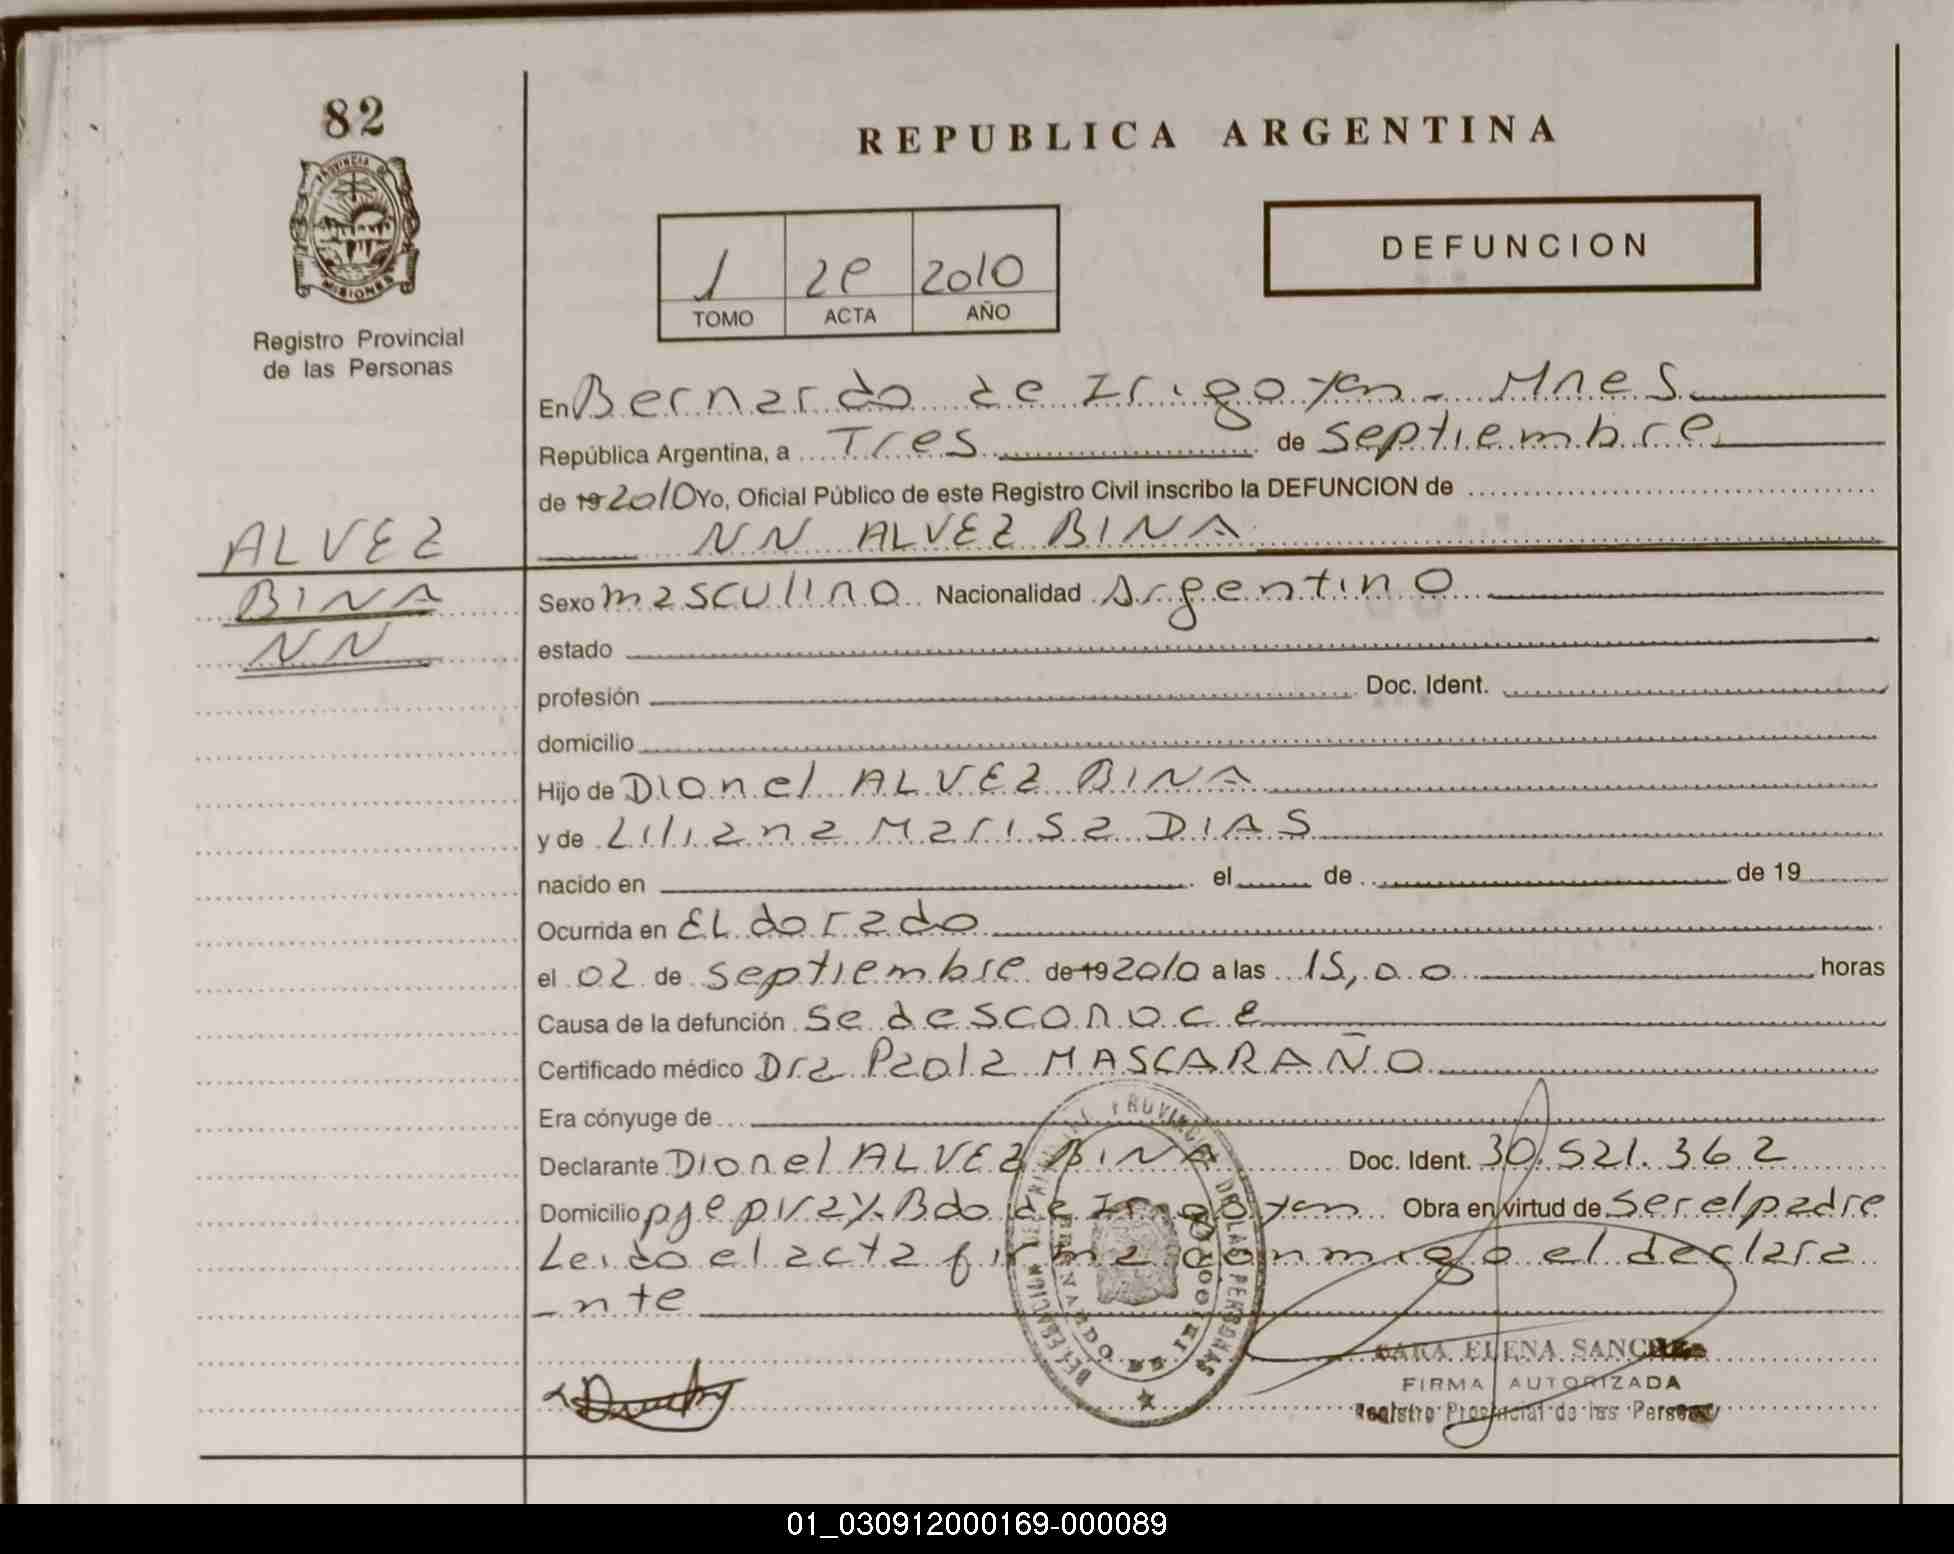 82
REPUBLICA ARGENTINA
PROVINCIA DE
MISIONES
DEFUNCION
1 2e 2010
TOMO ACTA AÑO
Registro Provincial
de las Personas
En Bernardo de Irigoyen - Mnes
República Argentina, a Tres de septiembre
de 19 2010 Yo, Oficial Público de este Registro Civil inscribo la DEFUNCION de
NN ALVEZ BINA
ALVEZ
BINA
NN
Sexo masculino Nacionalidad Argentino
estado
profesión Doc. Ident.
domicilio
Hijo de Dionel ALVEZ BINA
y de Liliana Marisa DIAS
nacido en el de de 19
Ocurrida en ELdorado
el 02 de septiembre de 19 2010 a las 15,00 horas
Causa de la defunción se desconoce
Certificado médico Dra Paola MASCARAÑO
Era cónyuge de
Declarante Dionel ALVEZ BINA Doc. Ident. 30.521.362
Domicilio pje piray Bdo de Irigoyen Obra en virtud de ser el padre
Leido el acta firma conmigo el declara
-nte
SARA ELENA SANCHEZ
FIRMA AUTORIZADA
Registro Provincial de las Personas
01_030912000169-000089